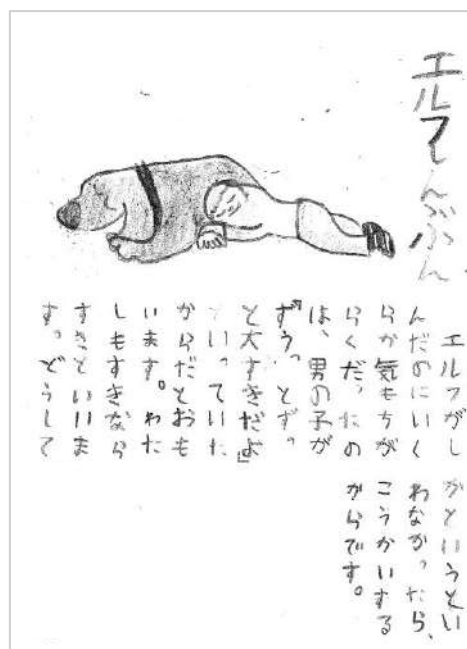 エルフしんぶん
エルフがし
んだのにいく
らか気もちが
らくだったの
は、男の子が
「ずうっとずっ
と大すきだよ」
といっていた
からだとおも
います。わた
しもすきなら
すきといいま
す。どうして
かというとい
わなかったら、
こうかいする
からです。